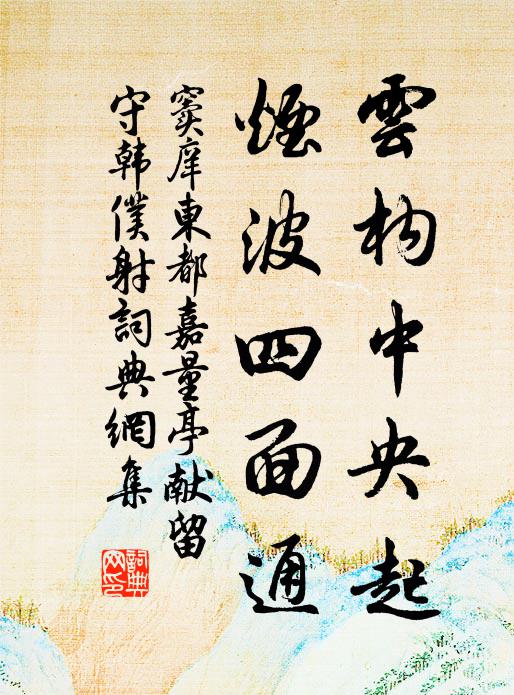 雲构中央起
煙波四面通
窦庠東都嘉量亭献留
守韩僕射詞典網集
詞典
网印